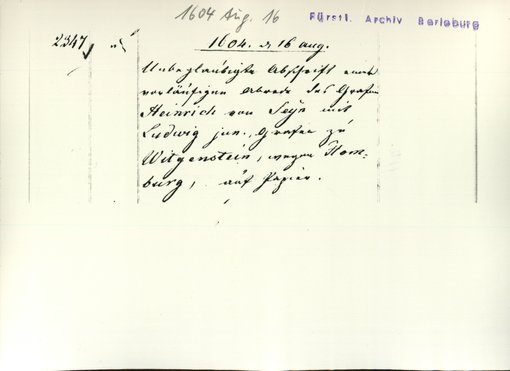 1604 Aug. 16
Fürstl. Archiv Berleburg
2347
1604. d 16 aug.
Unbeglaubigte Abschrift einer
vorläufigen Abrede des Grafen
Heinrich von Seyn mit
Ludwig jun., Grafen zu
Witgenstein, wegen Hom-
burg, auf Papier.